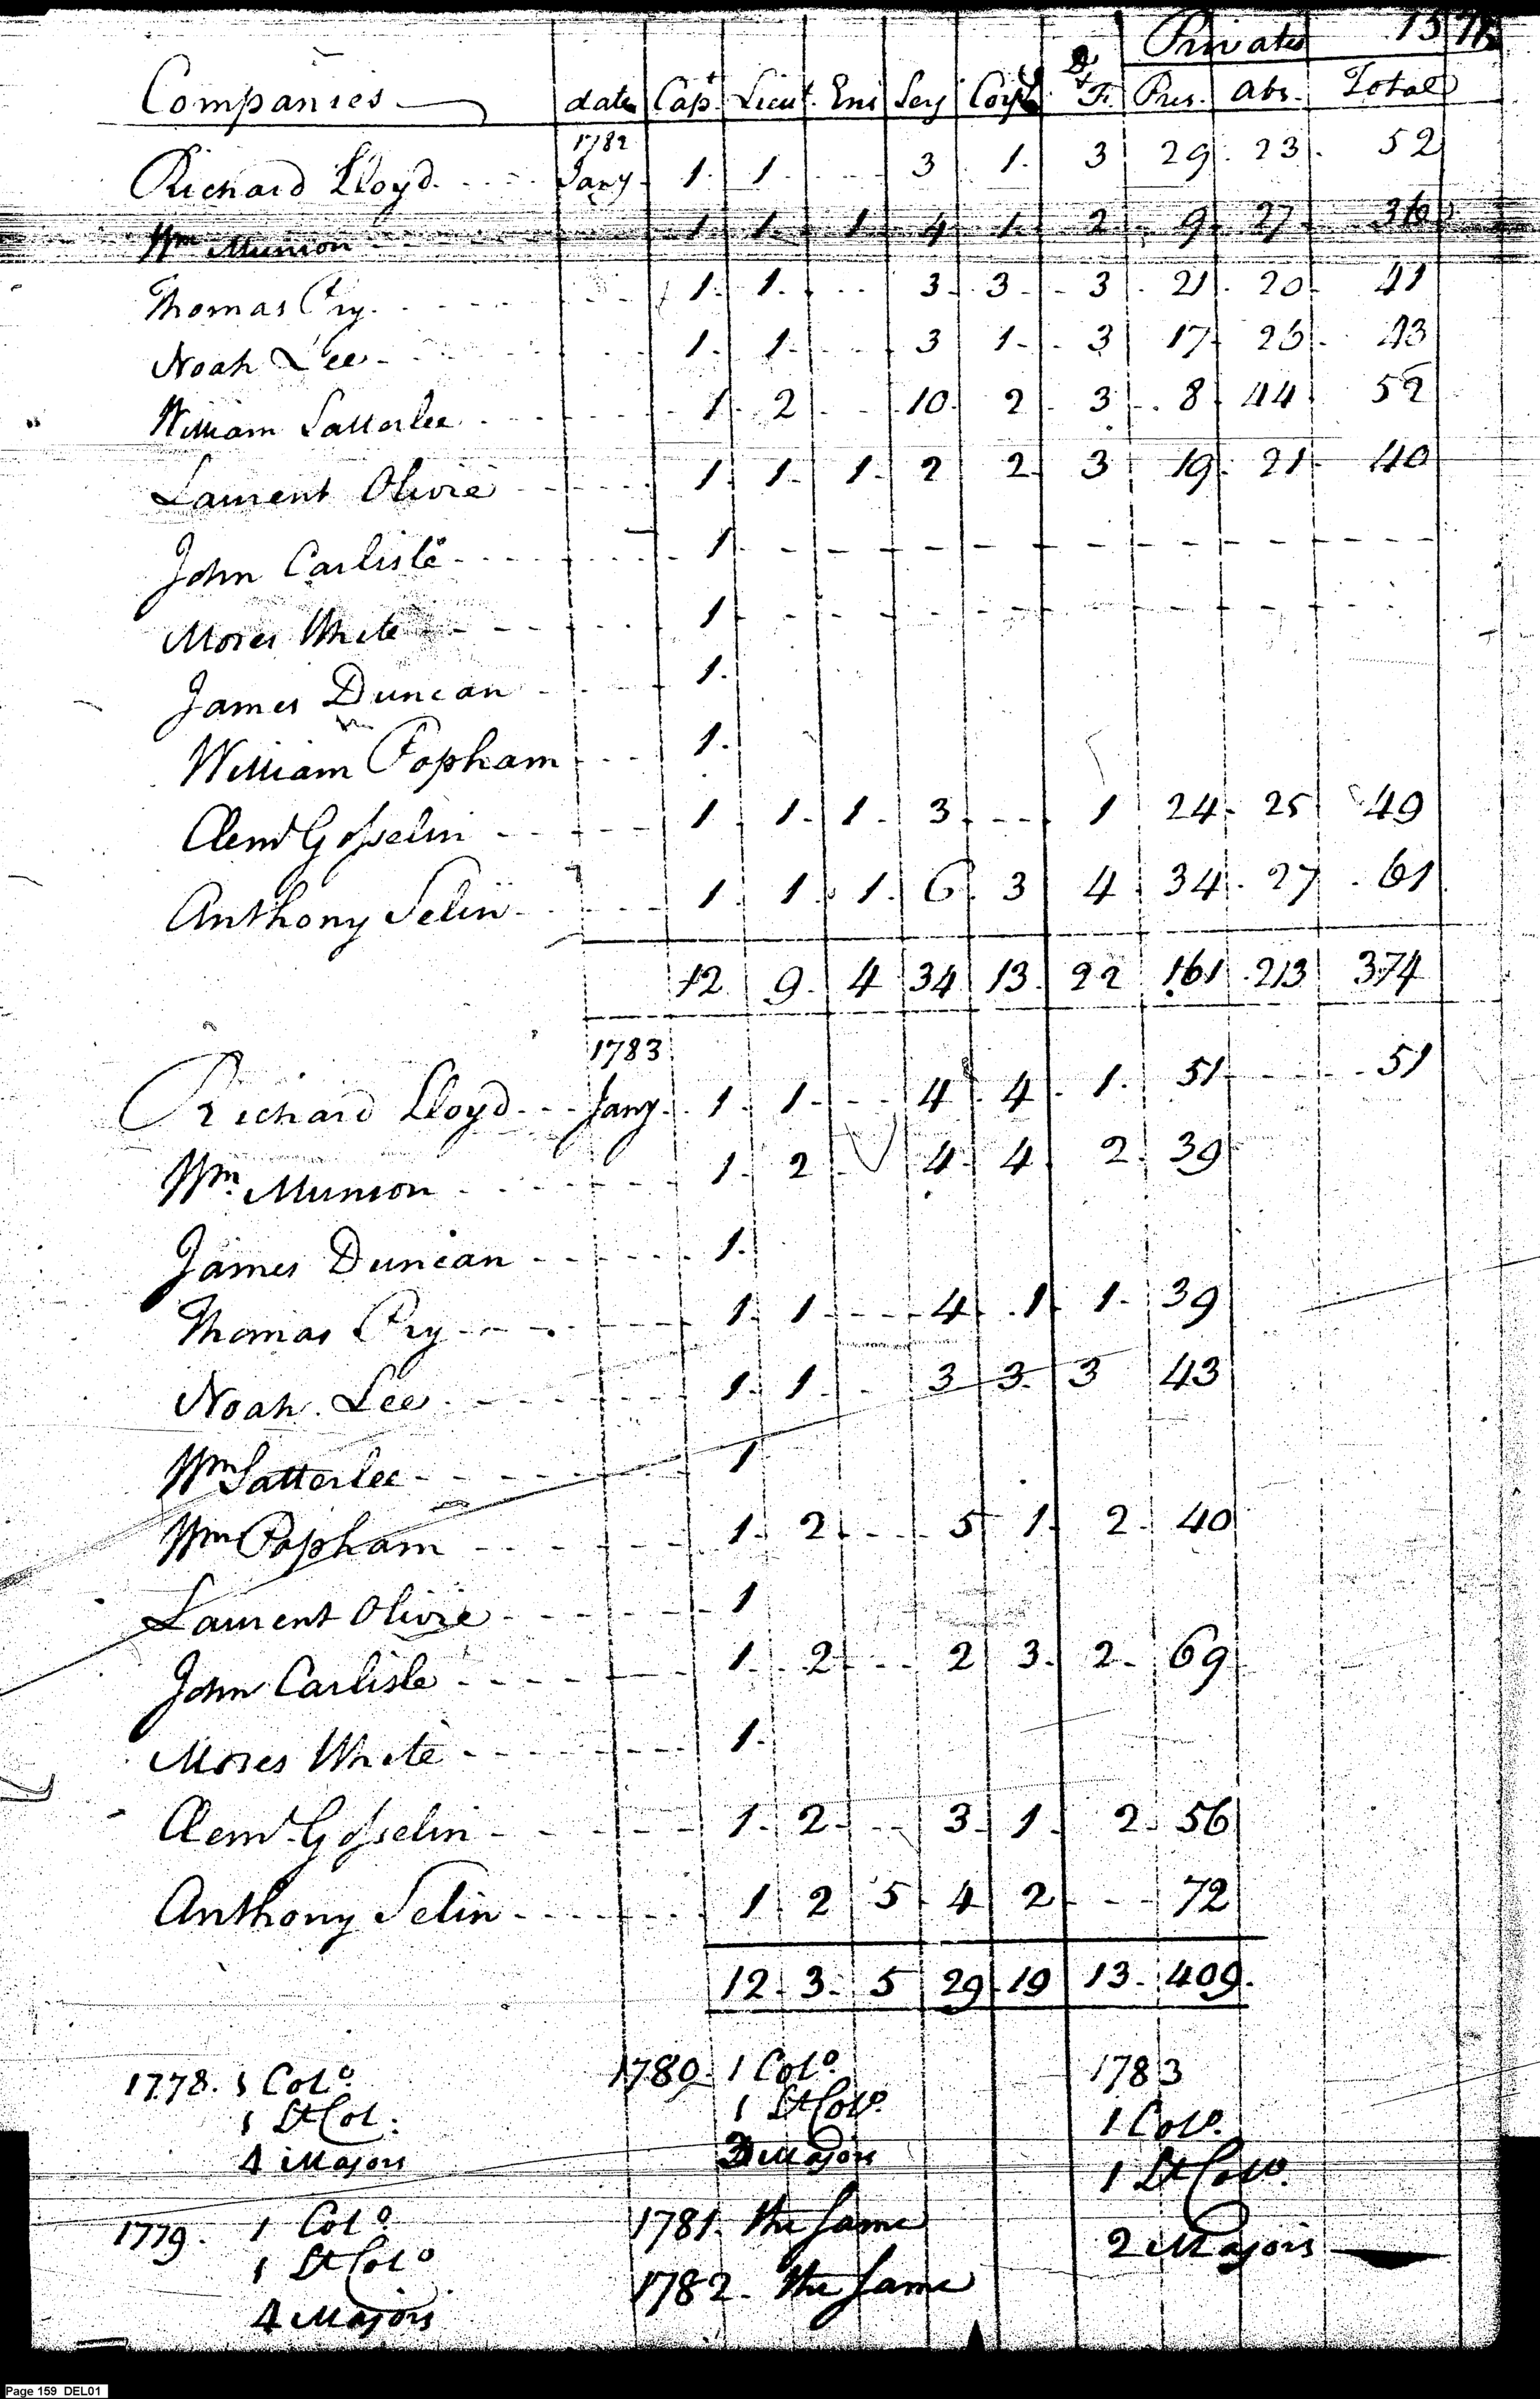 Privates
Companies date Capt. Lieut. Ens Serj Corpl D & F. Pres. abs. Total
1782
Richard Lloyd Jany. 1. 1. 3 1. 3 29 23 52
Wm Munson 1 1 1 4 1 2 9 27 36
Thomas Pry 1 1 3 3 3 21 20 41
Noah Lee 1 1 3 1 3 17 26 43
William Satterlee 1 2 10 2 3 8 44 52
Laurent Olivie 1 1 1 2 2 3 19 21 40
John Carlisle 1
Moses White 1
James Duncan 1.
William Popham 1.
Clemt Gosselin 1 1 1 3 1 24 25 49
Anthony Selin 1 1 1 6 3 4 34 27 61
12 9 4 34 13 22 161 213 374
1783
Richard Lloyd Jany. 1 1 4 4 1. 51 51
Wm Munson 1 2 4 4 2 39
James Duncan 1.
Thomas Pry 1 1 4 1 1 39
Noah Lee 1 1 3 3 3 43
Wm Satterlee 1
Wm Popham 1 2 5 1 2 40
Laurent Olivie 1
John Carlisle 1 2 2 3 2 69
Moses White 1
Clemt Gosselin 1 2 3 1 2 56
Anthony Selin 1 2 5 4 2 72
12 3 5 29 19 13 409.
1778. 1 Colo
1 Lt Col.
4 Majors
1779. 1 Colo
1 Lt Colo
4 Majors
1780. 1 Colo.
1 Lt Colo.
Majors
1781. the same
1782. the same
1783
1 Colo.
1 Lt Colo.
2 Majors
Page 159 DEL01